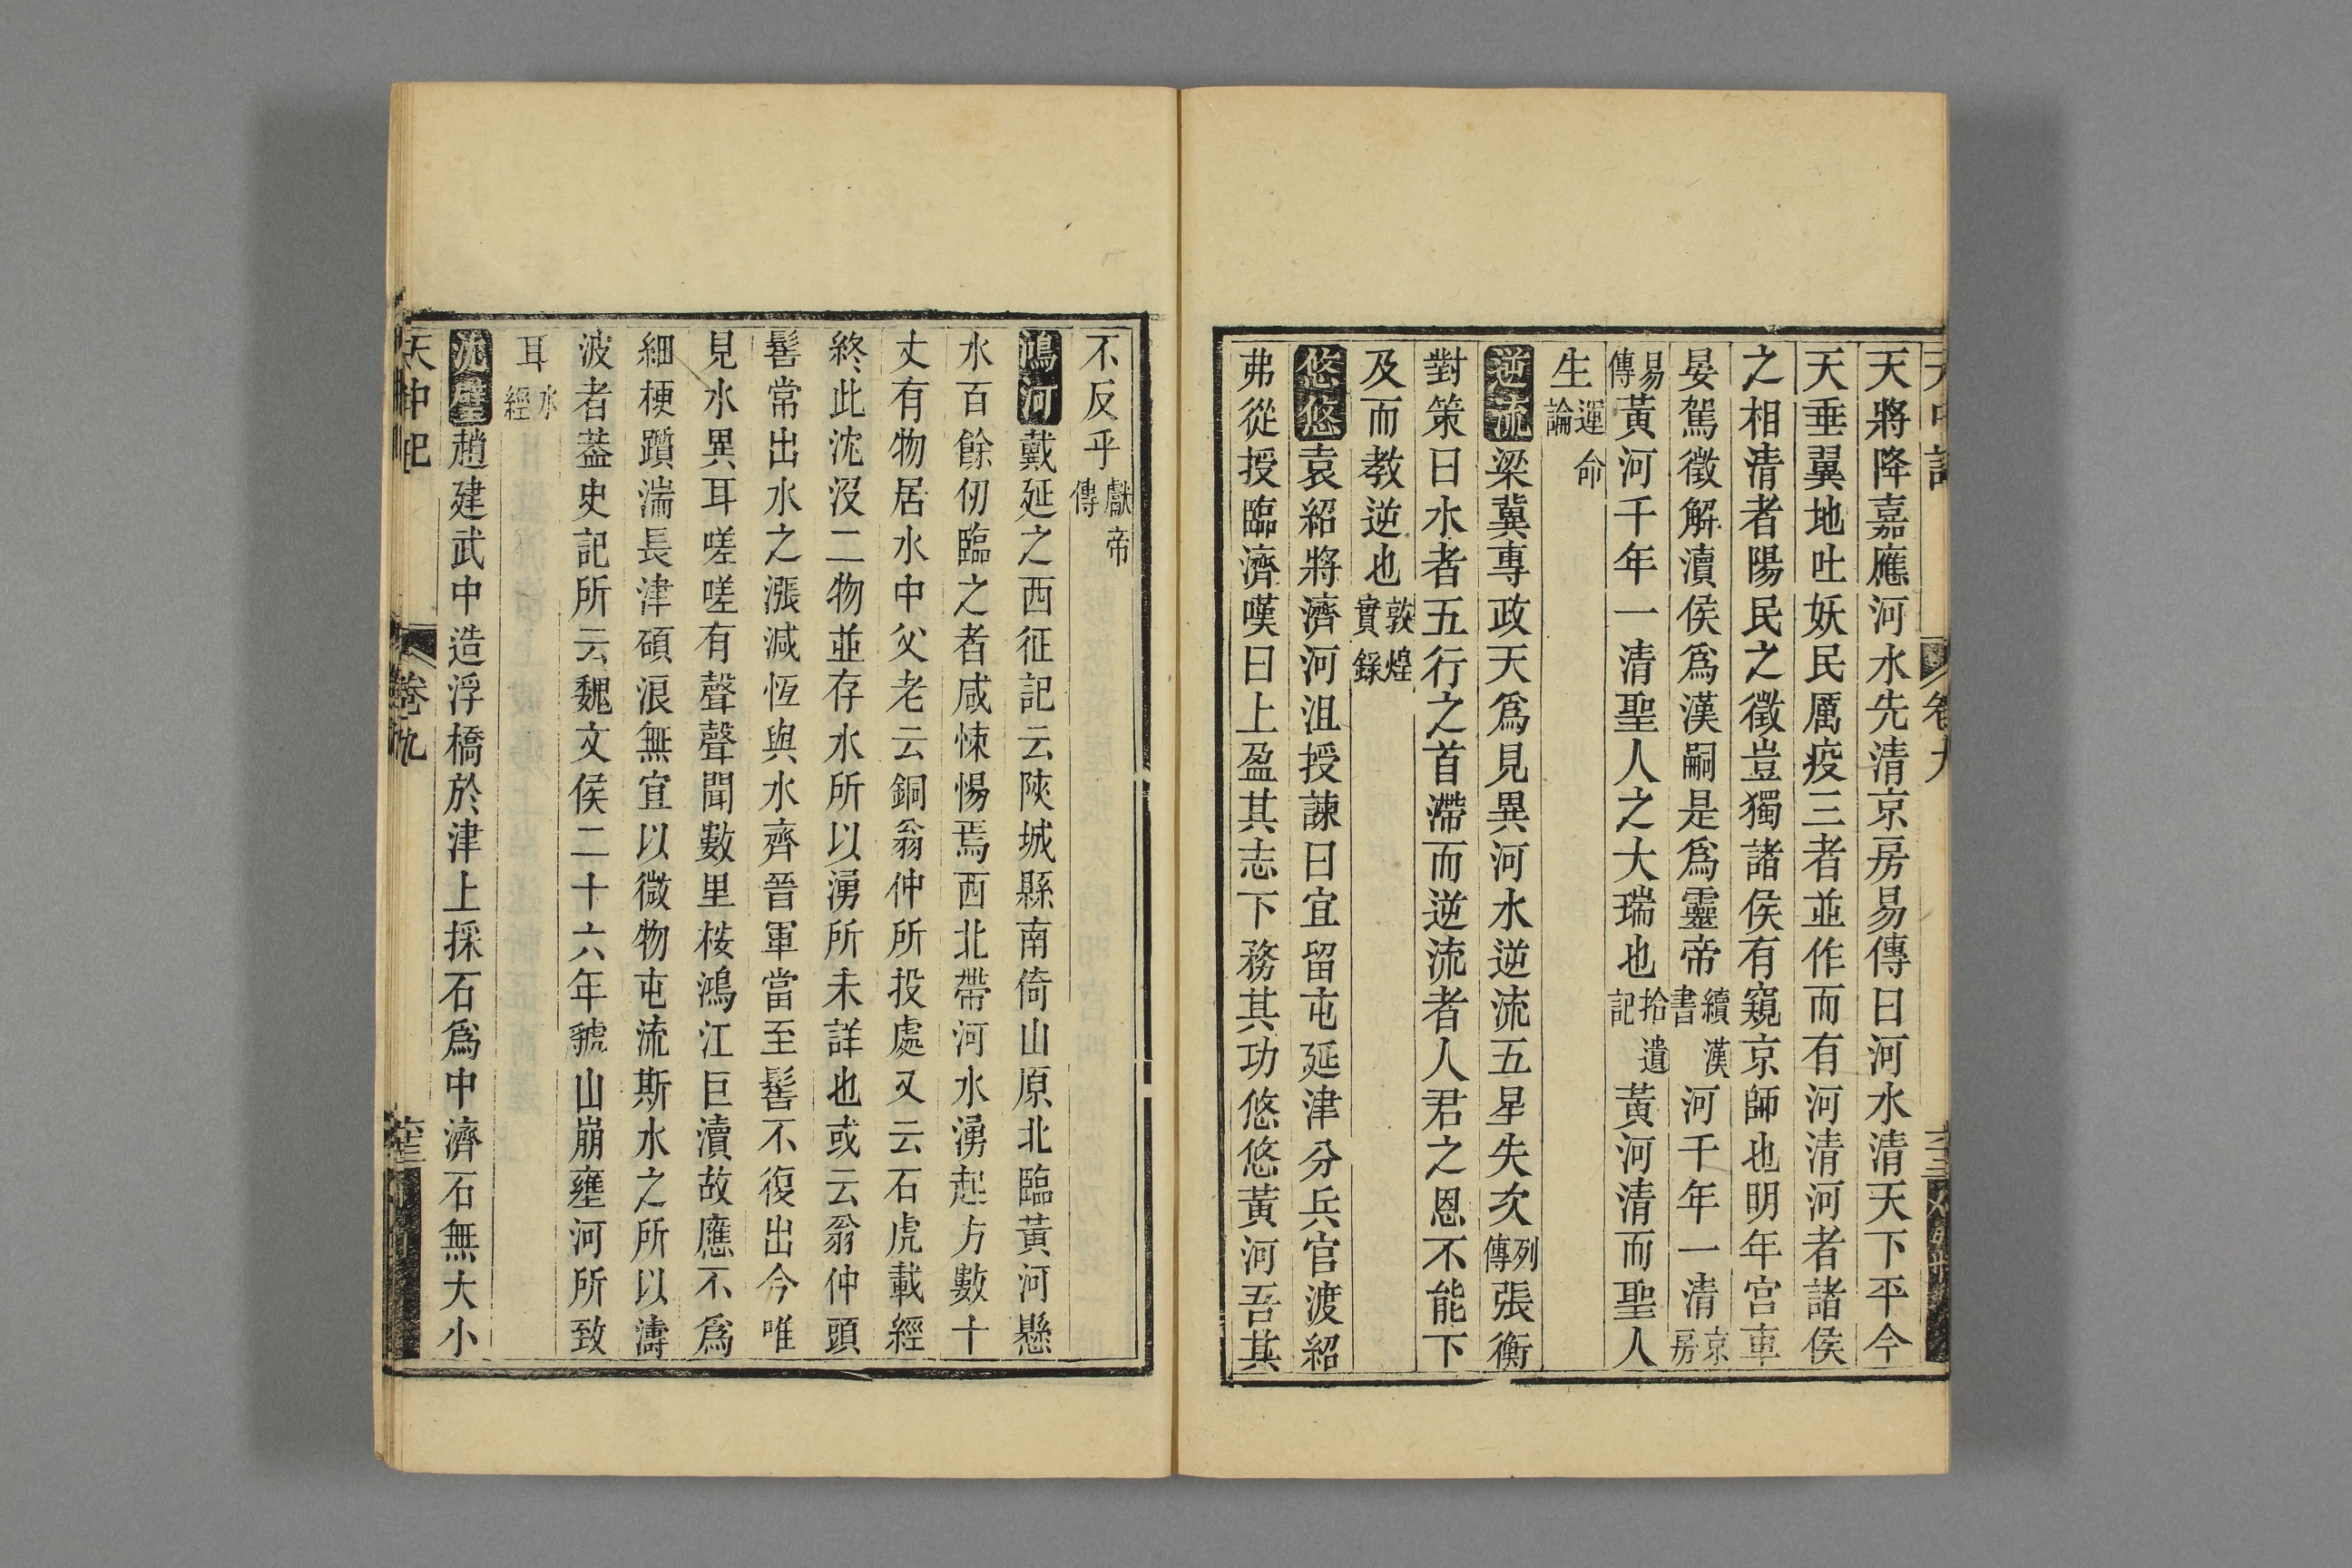 天將降嘉應河水先清京房易傳曰河水清天下平今
天垂翼地吐妖民厲疫三者並作而有河清河者諸侯
之相清者陽民之徵豈獨諸侯有窺京師也明年宫車
晏駕徵解瀆侯爲漢嗣是爲靈帝續漢書河千年一清京房
易傳黃河千年一清聖人之大瑞也拾遺記黃河清而聖人
生運命論
逆流梁冀專政天爲見異河水逆流五星失次列傳張衡
對策曰水者五行之首滯而逆流者人君之恩不能下
及而教逆也敦煌實錄
悠悠袁紹將濟河沮授諫曰宜留屯延津分兵官渡紹
弗從授臨濟嘆曰上盈其志下務其功悠悠黃河吾其
不反乎獻帝傳
鳴河戴延之西征記云陜城縣南倚山原北臨黃河懸
水百餘仞臨之者咸悚惕焉西北帶河水湧起方數十
丈有物居水中父老云銅翁仲所投處又云石虎載經
終此沈沒二物並存水所以湧所未詳也或云翁仲頭
髻常出水之漲減恆與水齊晉軍當至髻不復出今唯
見水異耳嗟嗟有聲聲聞數里桉鴻江巨瀆故應不爲
細梗躓湍長津碩浪無宜以微物屯流斯水之所以濤
波者葢史記所云魏文侯二十六年虢山崩壅河所致
耳水經
沈璧趙建武中造浮橋於津上採石爲中濟石無大小
天中記
卷九